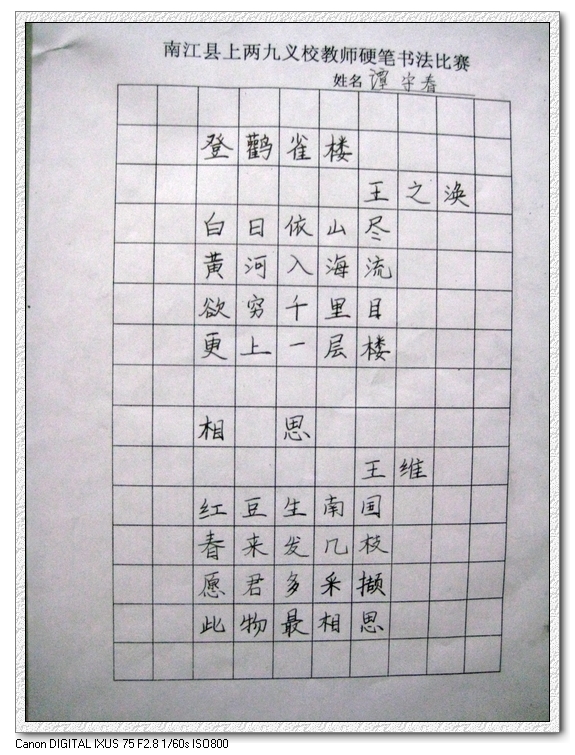 南江县上两九义校教师硬笔书法比赛
姓名 谭守春
登鹳雀楼
王之涣
白日依山尽
黄河入海流
欲穷千里目
更上一层楼
相思
王维
红豆生南国
春来发几枝
愿君多采撷
此物最相思
Canon DIGITAL IXUS 75 F2.8 1/60s ISO800